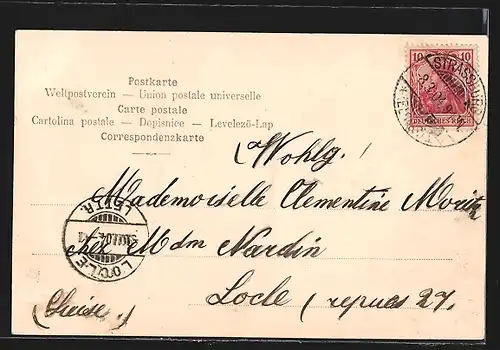 Postkarte
Weltpostverein — Union postale universelle
Carte postale
Cartolina postale — Dopisnice — Levelező-Lap
Correspondenzkarte
10 10
DEUTSCHES REICH
STRASSBURG
(Wohlg.)
Mademoiselle Clementine Moritz
chez Mdm Nardin
Locle
(Suisse.)
LOCLE